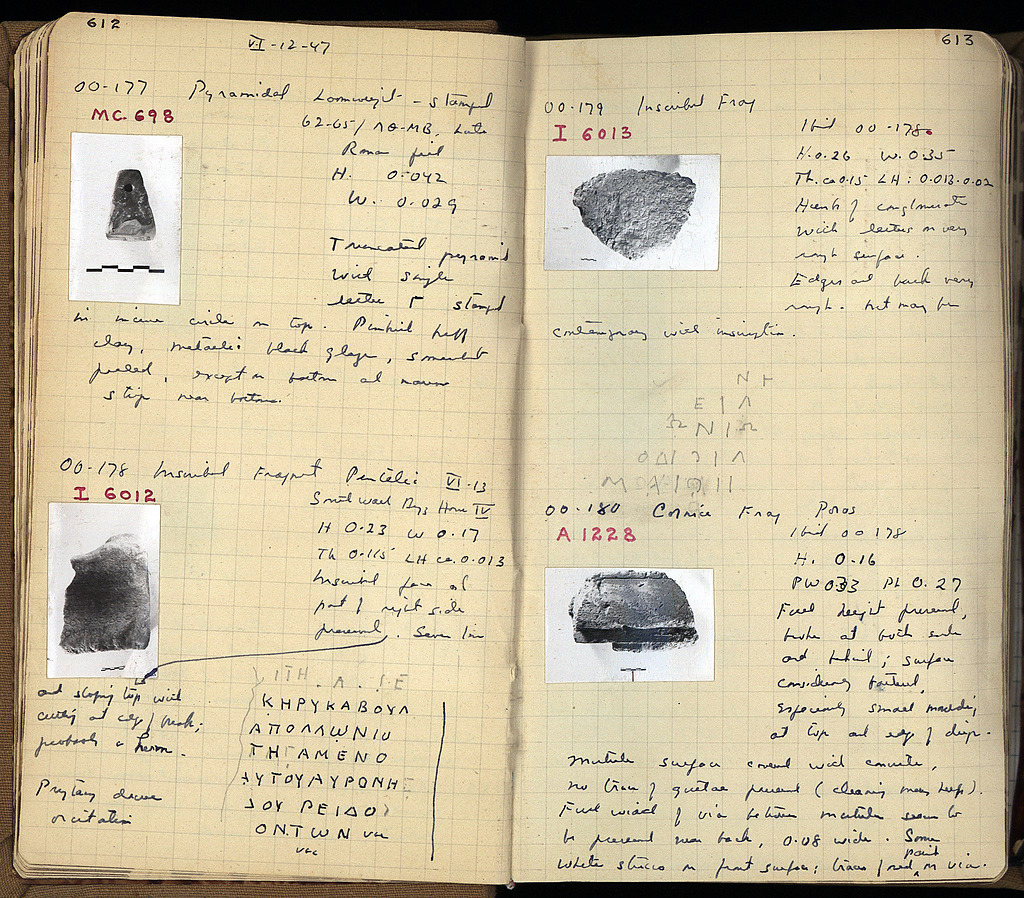 612
VI-12-47
00-177 Pyramidal Loomweight - stamped
MC 698
62-65/ΛΘ-MB, Late
Roman fill
H. 0.042
W. 0.029
Truncated pyramid
with single
letter Γ stamped
in incuse circle on top. Pinkish buff
clay, metallic black glaze, somewhat
peeled, except on bottom and narrow
strip near bottom.
00-178 Inscribed Fragment Pentelic VI-13
I 6012
South wall Byz House IV
H 0.23 W 0.17
Th 0.115 LH ca. 0.013
Inscribed face and
part of right side
preserved. Seven lines
and sloping top with
cutting at edge of break;
perhaps a herm.
Prytany decree
or citation
ΙΤΗ . Λ . ΙΕ
ΚΗΡΥΚΑΒΟΥΛ
ΑΠΟΛΛΩΝΙΟ
ΤΗΓΑΜΕΝΟ
ΑΥΤΟΥΑΥΡΟΝΗΕ
ΣΟΥ ΡΕΙΔΟ
ΟΝΤΩΝ vac
vac
613
00-179 Inscribed Frag
I 6013
Ibid 00-178.
H. 0.26 W. 0.35
Th. ca 0.15 LH: 0.013-0.02
Hunk of conglomerate
with letters on very
rough surface.
Edges and back very
rough. but may be
contemporary with inscription.
Ν Η
Ε Ι Λ
Ω Ν Ι Ω
Ο Δ Ι Ι Λ
00-180 Cornice Frag Poros
A 1228
Ibid 00 178
H. 0.16
PW 0.33 PL 0.27
Full height preserved,
broke at both ends
and behind; surface
considerably battered,
especially small moulding
at top and edge of drip.
Mutule surface covered with concrete,
no trace of guttae present (cleaning may help).
Full width of via between mutules seems to
be preserved near back, 0.08 wide. Some
white stucco on front surface; traces of red paint on via.